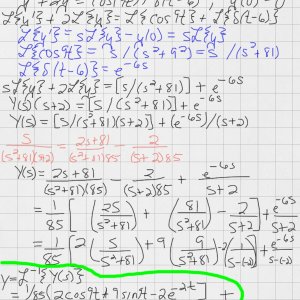 L{y'} + 2L{y} = L{cos9t} + L{δ(t-6)}
L{y'} = sL{y} - y(0) = sL{y}
L{cos9t} = s/(s²+9²) = s/(s²+81)
L{δ(t-6)} = e^-6s
sL{y} + 2L{y} = [s/(s²+81)] + e^-6s
Y(s)(s+2) = [s/(s²+81)] + e^-6s
Y(s) = [s/(s²+81)(s+2)] + (e^-6s)/(s+2)
s/(s²+81)(s+2) = 2s+81/(s²+81)85 - 2/(s+2)85
Y(s) = 2s+81/(s²+81)85 - 2/(s+2)85 + e^-6s/s+2
= 1/85 [(2s/s²+81) + (81/s²+81) - 2/s+2] + e^-6s/s+2
= 1/85 [2(s/s²+81) + 9(9/s²+81) - 2(1/s-(-2))] + e^-6s/s-(-2)
y = L^-1{Y(s)}
= 1/85 [2cos9t + 9sin9t - 2e^-2t] +